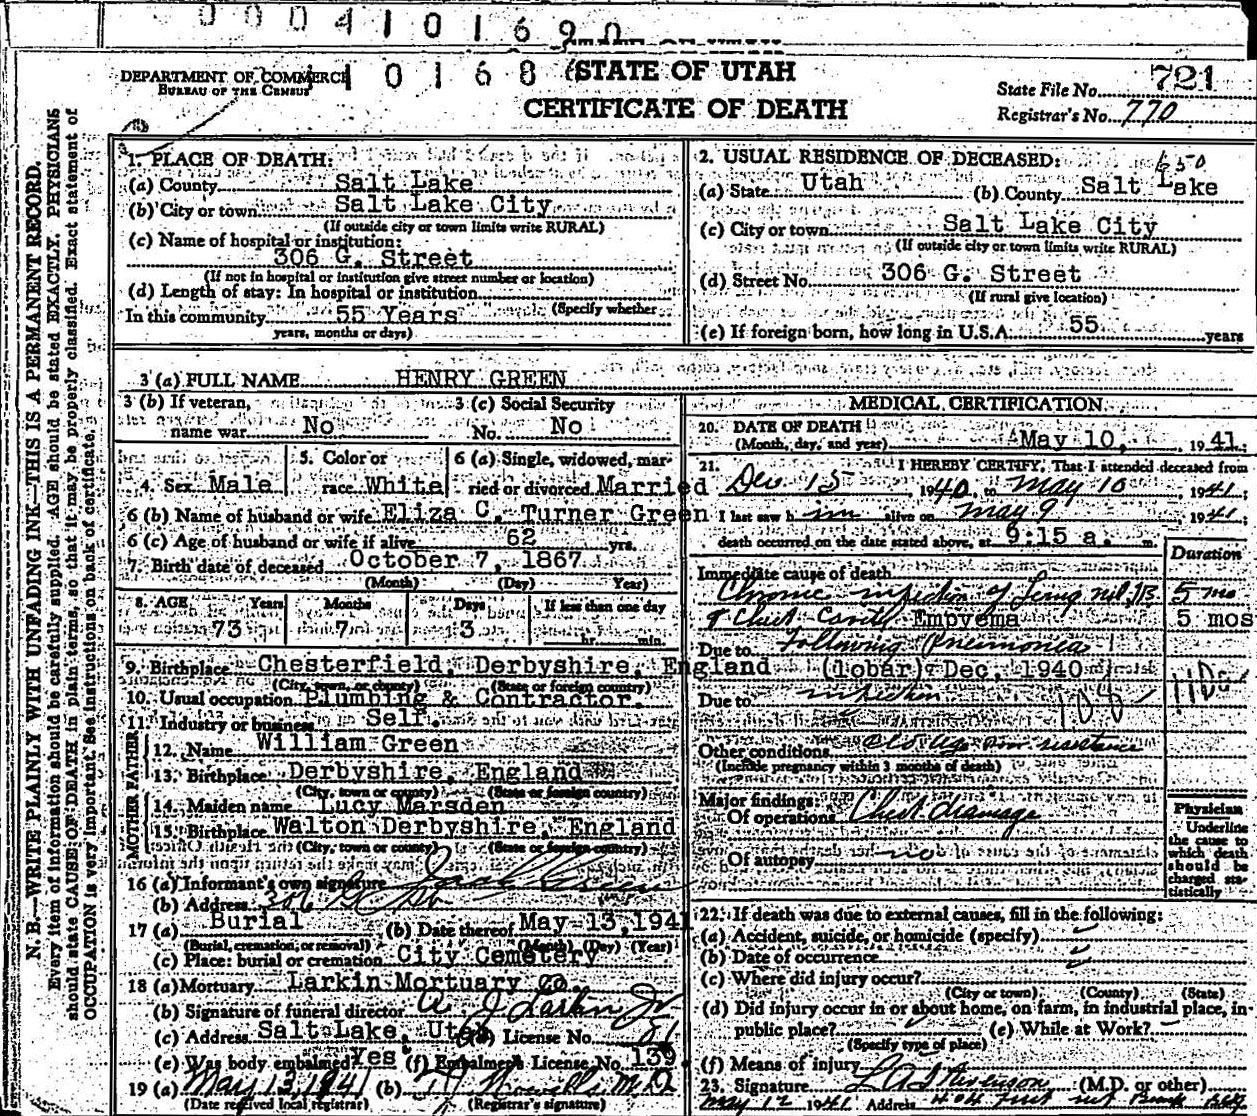 0004101690
STATE OF UTAH
DEPARTMENT OF COMMERCE
BUREAU OF THE CENSUS
10168
STATE OF UTAH
CERTIFICATE OF DEATH
State File No. 721
Registrar's No. 770
N. B.—WRITE PLAINLY WITH UNFADING INK—THIS IS A PERMANENT RECORD.
Every item of information should be carefully supplied. AGE should be stated EXACTLY. PHYSICIANS
should state CAUSE OF DEATH in plain terms, so that it may be properly classified. Exact statement of
OCCUPATION is very important. See instructions on back of certificate.
1. PLACE OF DEATH:
(a) County Salt Lake
(b) City or town Salt Lake City
(If outside city or town limits write RURAL)
(c) Name of hospital or institution:
306 G. Street
(If not in hospital or institution give street number or location)
(d) Length of stay: In hospital or institution
(Specify whether
In this community 55 Years
years, months or days)
2. USUAL RESIDENCE OF DECEASED: 650
(a) State Utah (b) County Salt Lake
(c) City or town Salt Lake City
(If outside city or town limits write RURAL)
(d) Street No. 306 G. Street
(If rural give location)
(e) If foreign born, how long in U.S.A. 55 years
3 (a) FULL NAME HENRY GREEN
3 (b) If veteran, name war No
3 (c) Social Security No. No
4. Sex Male
5. Color or race White
6 (a) Single, widowed, married or divorced Married
6 (b) Name of husband or wife Eliza C. Turner Green
6 (c) Age of husband or wife if alive 62 yrs.
7. Birth date of deceased October 7, 1867
(Month) (Day) Year)
8. AGE Years Months Days If less than one day
73 7 3 hr. min.
9. Birthplace Chesterfield, Derbyshire, England
(City, town, or county) (State or foreign country)
10. Usual occupation Plumbing & Contractor.
11. Industry or business Self.
FATHER
12. Name William Green
13. Birthplace Derbyshire, England
(City, town or county) (State or foreign country)
MOTHER
14. Maiden name Lucy Marsden
15. Birthplace Walton Derbyshire, England
(City, town or county) (State or foreign country)
16 (a) Informant's own signature Green
(b) Address 306 G
17 (a) Burial (b) Date thereof May 13, 1941
(Burial, cremation, or removal) (Month) (Day) (Year)
(c) Place: burial or cremation City Cemetery
18 (a) Mortuary Larkin Mortuary Co.
(b) Signature of funeral director A J Larkin Jr
(c) Address Salt Lake, Utah License No. 81
(e) Was body embalmed Yes (f) Embalmer's License No. 139
19 (a) May 13, 1941 (b) M.D.
(Date received local registrar) (Registrar's signature)
MEDICAL CERTIFICATION
20. DATE OF DEATH
(Month, day, and year) May 10, 1941.
21. I HEREBY CERTIFY, That I attended deceased from
Dec 15 1940, to May 10, 1941;
I last saw h im alive on May 9 1941
death occurred on the date stated above, at 9:15 a. m.
Duration
Immediate cause of death
Chronic infection of Lung not TB. 5 mo
& Chest Cavity Empyema 5 mos
Due to Following Pneumonia
(lobar) Dec. 1940
Due to infection 108
Other conditions old age poor resistance
(Include pregnancy within 3 months of death)
Major findings:
Of operations Chest drainage
Of autopsy no
Physician
Underline
the cause to
which death
should be
charged sta-
tistically
22. If death was due to external causes, fill in the following:
(a) Accident, suicide, or homicide (specify)
(b) Date of occurrence
(c) Where did injury occur?
(City or town) (County) (State)
(d) Did injury occur in or about home, on farm, in industrial place, in
public place? (e) While at Work?
(Specify type of place)
(f) Means of injury
23. Signature L A Stevenson (M.D. or other)
May 12 1941 Address 404 First Nat Bank Bldg